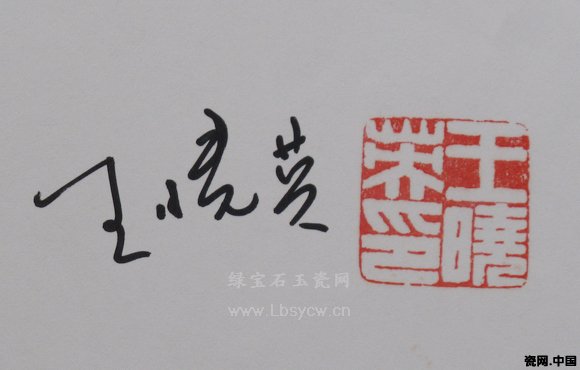 王晓英
王曉英印
绿宝石玉瓷网
www.Lbsycw.cn
瓷网.中国